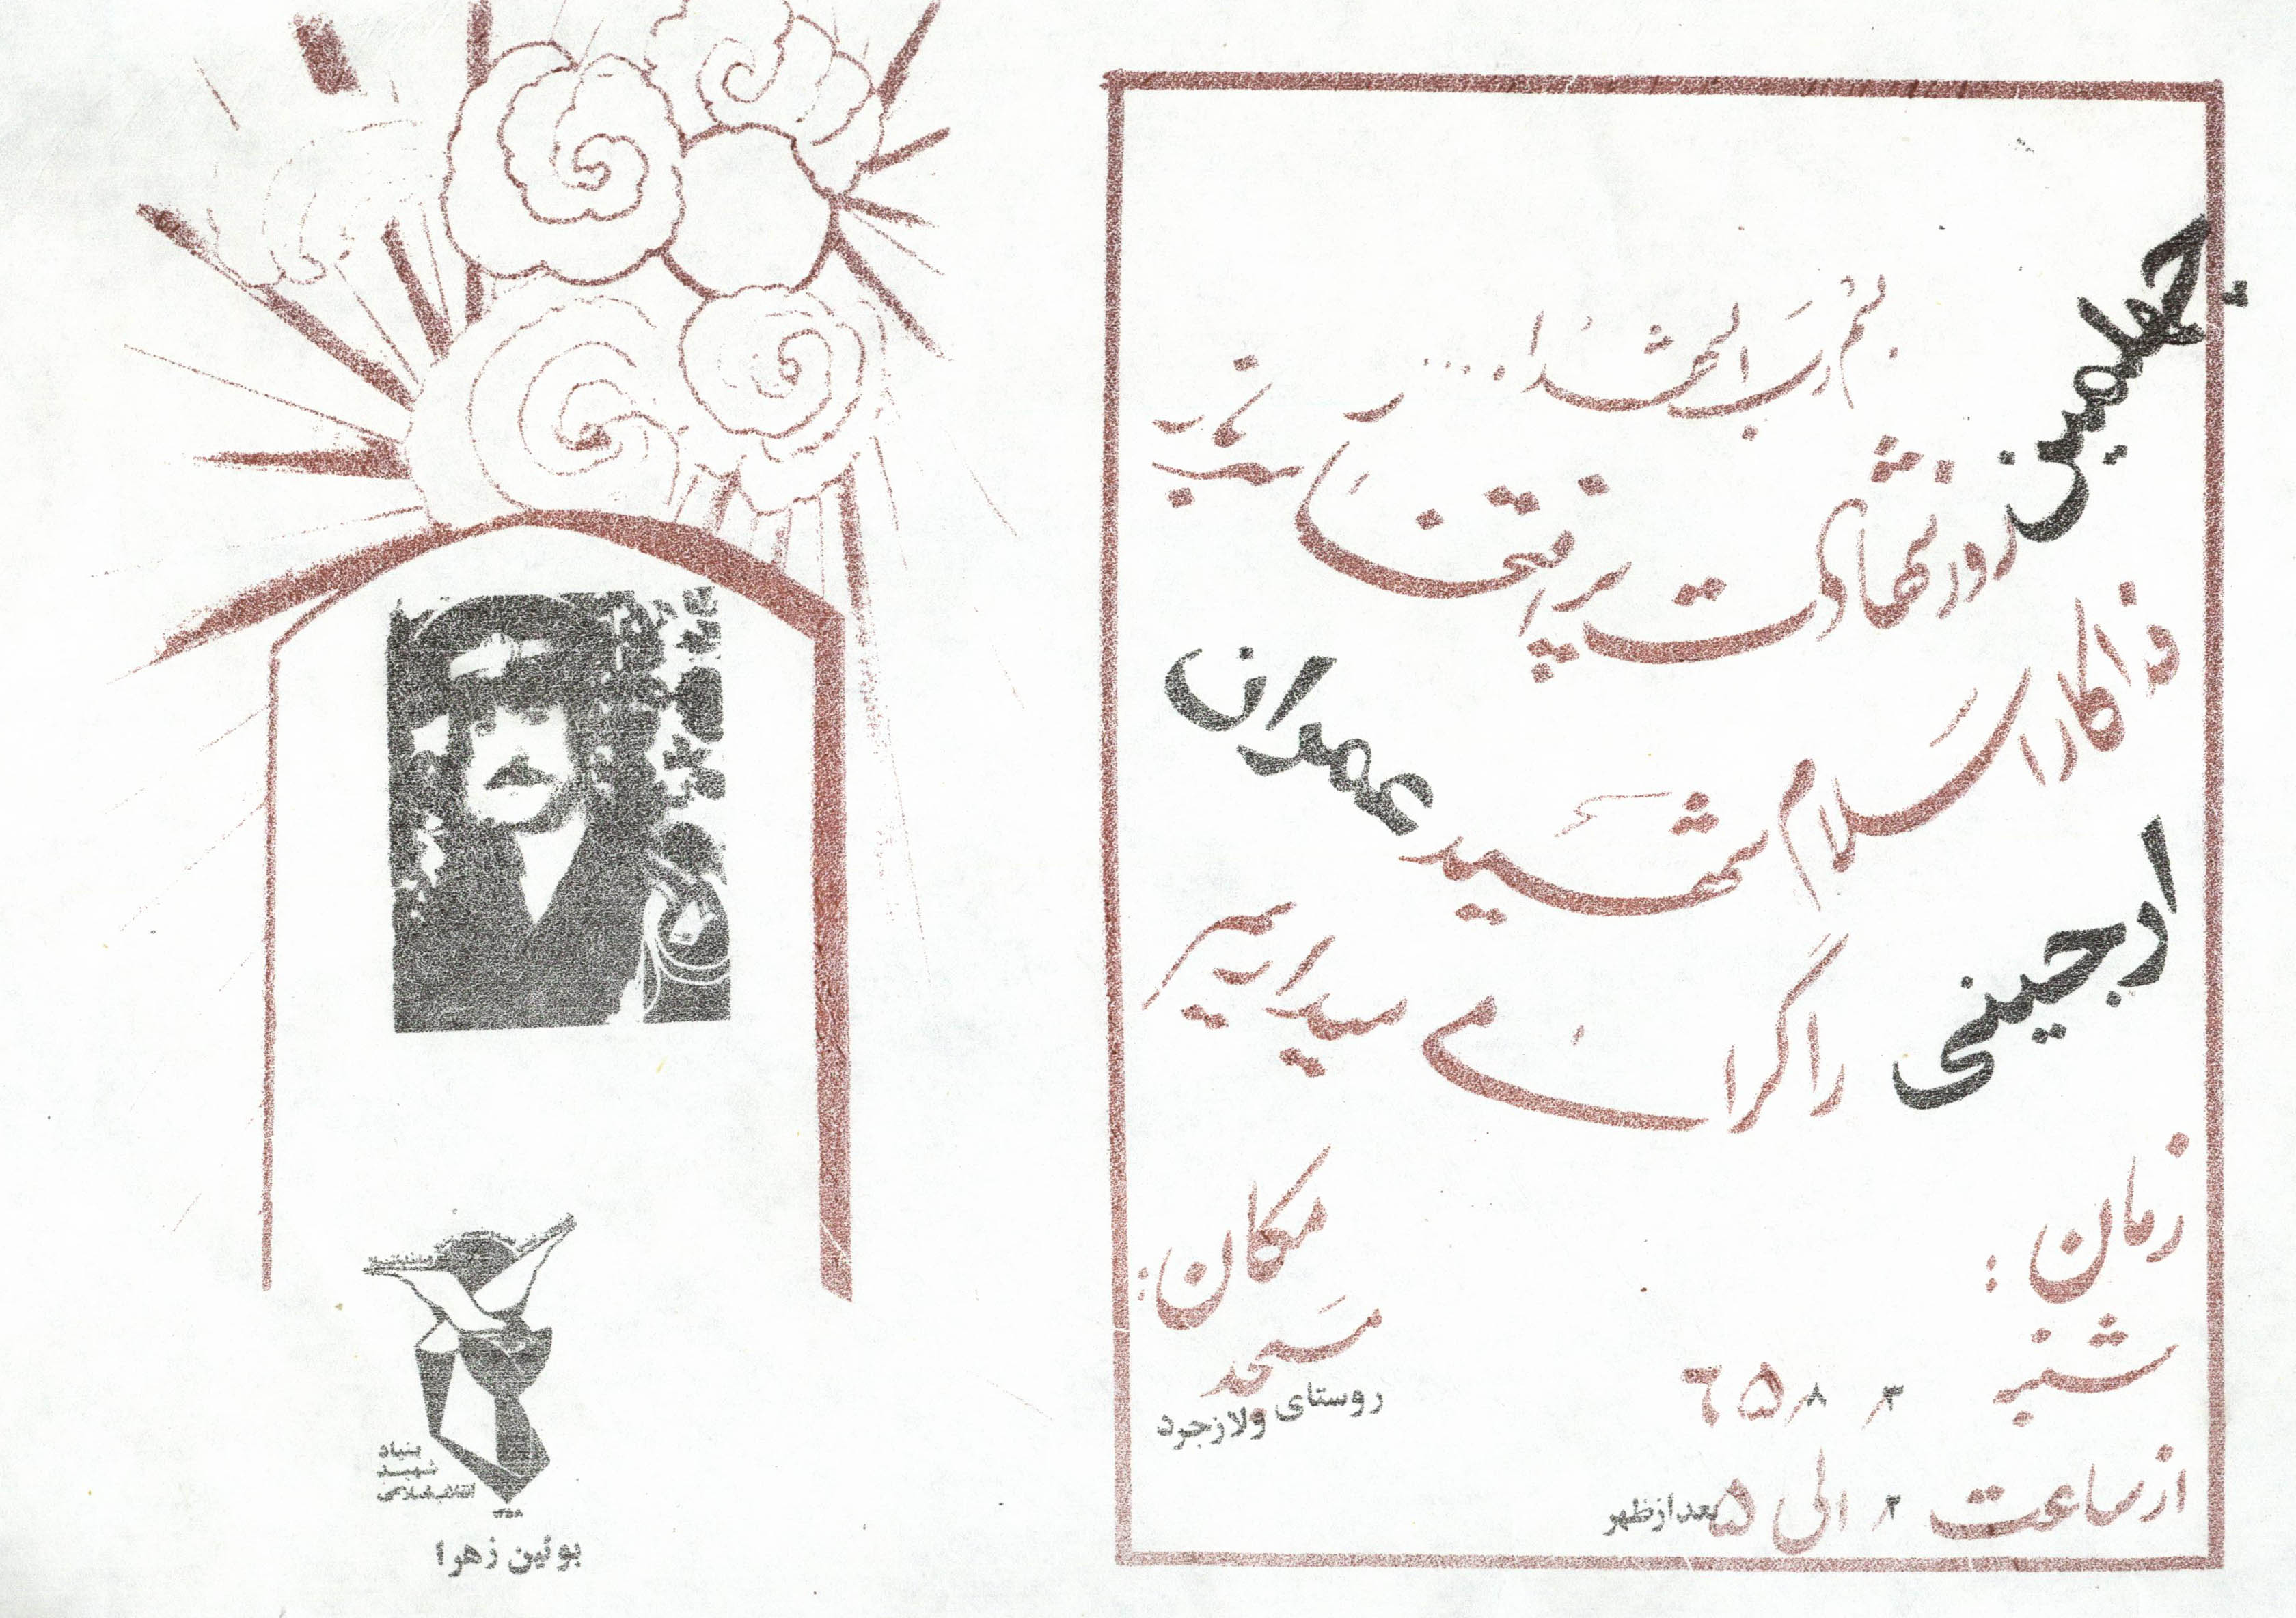 بسم رب الشهداء ....
چهلمین روز شهادت پر افتخار سرباز
فداکار اسلام شهید عمران
ارجینی را گرامی میداریم
زمان :
شنبه ۳ر۸ر۶۵
از ساعت ۲ الی ۵ بعد از ظهر
مکان :
مسجد
روستای ولازجرد
بنیاد
شهید
انقلاب اسلامی
بوئین زهرا